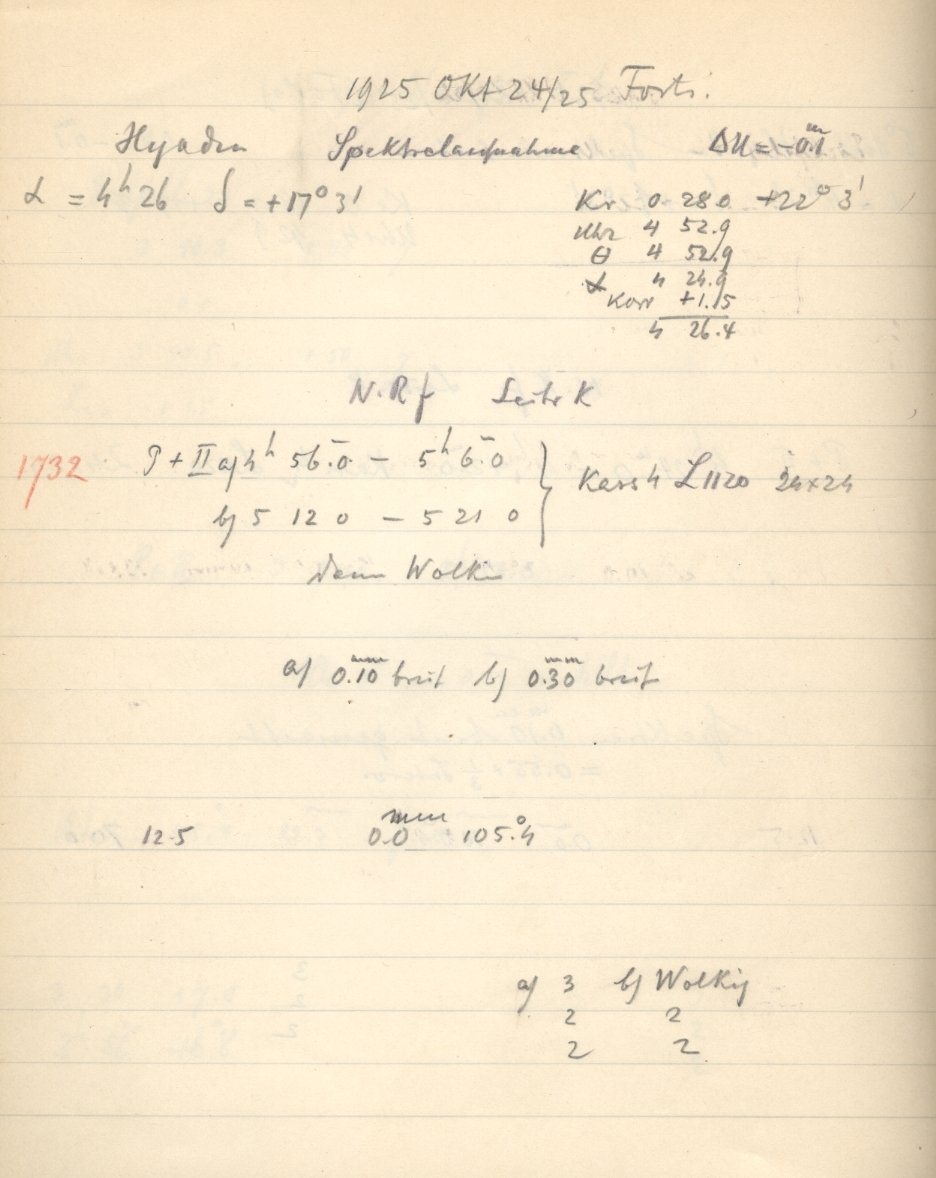 1925 OKt 24/25 Forts.
Hyaden Spektralaufnahme ΔU = -0.1m
α = 4h 26 δ = +17° 3'
Kr 0 28 0 +22° 3'
Uhr 4 52.9
θ 4 52.9
α 4 24.9
Korr +1.15
4 26.4
N.R f Leitr K
1732 P + II a) 4h 56.0 - 5h 6.0
b) 5 12 0 - 5 21 0
Kass 4 L 1120 24x24
dann Wolken
a) 0.10mm breit b) 0.30mm breit
12.5 0.0mm 105.°4
a) 3 b) Wolkig
2 2
2 2